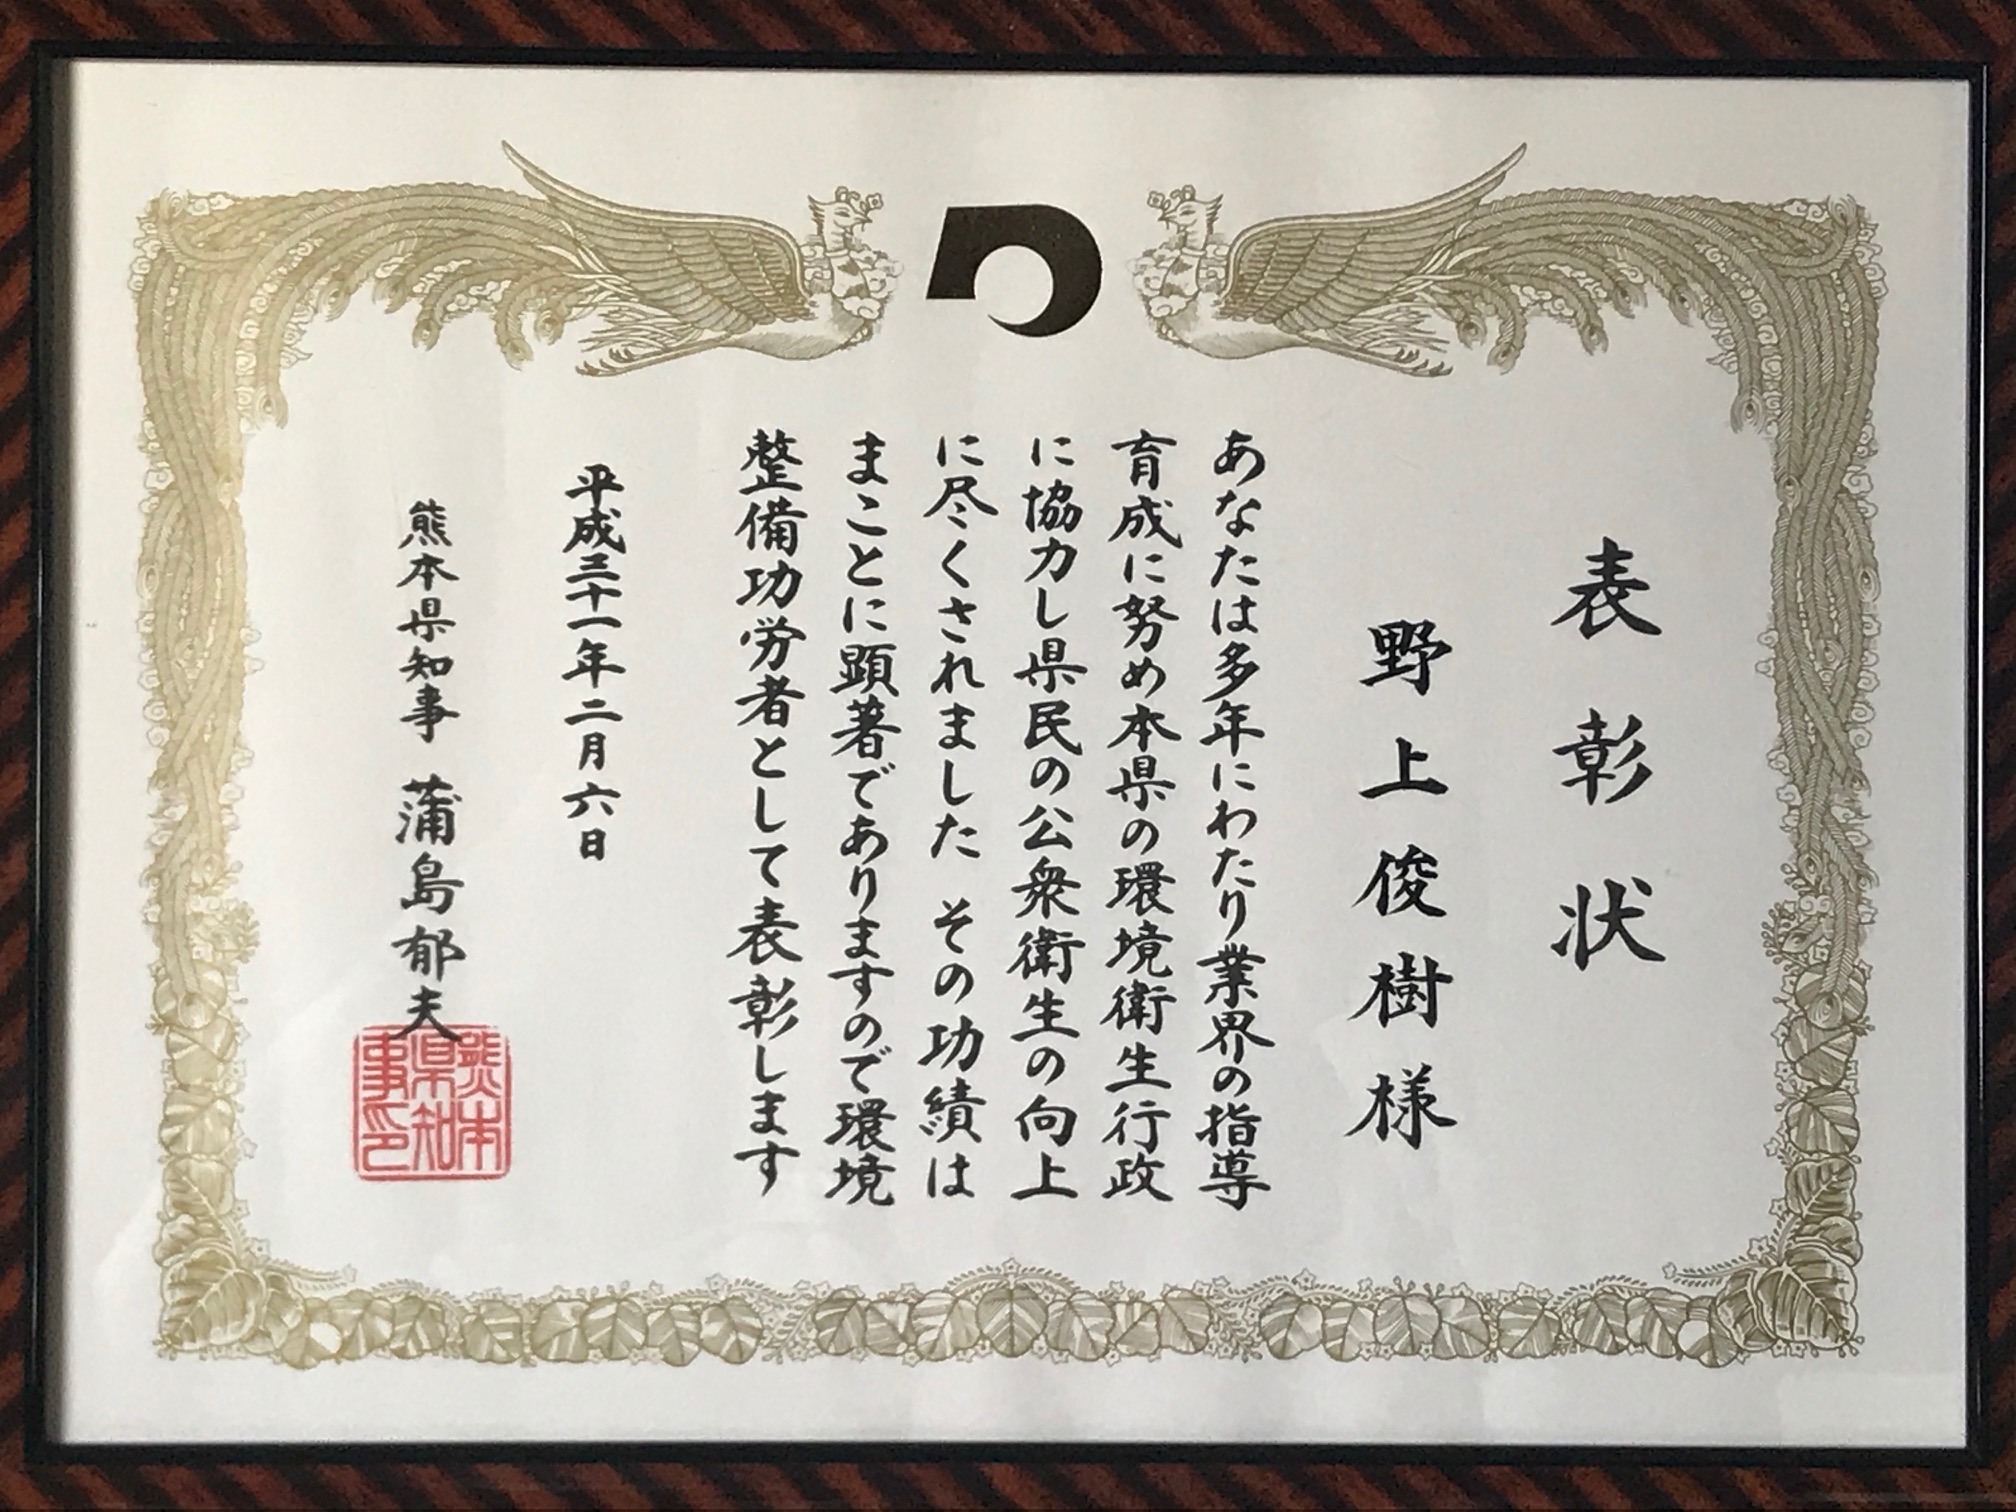 表彰状
野上俊樹様
あなたは多年にわたり業界の指導
育成に努め本県の環境衛生行政
に協力し県民の公衆衛生の向上
に尽くされました その功績は
まことに顕著でありますので環境
整備功労者として表彰します
平成三十一年二月六日
熊本県知事 蒲島郁夫
熊本
県知
事印